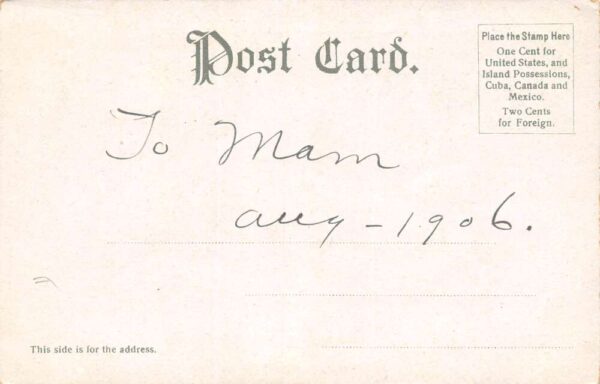 Post Card.
Place the Stamp Here
One Cent for
United States, and
Island Possessions,
Cuba, Canada and
Mexico.
Two Cents
for Foreign.
To Mam
Aug - 1906.
This side is for the address.